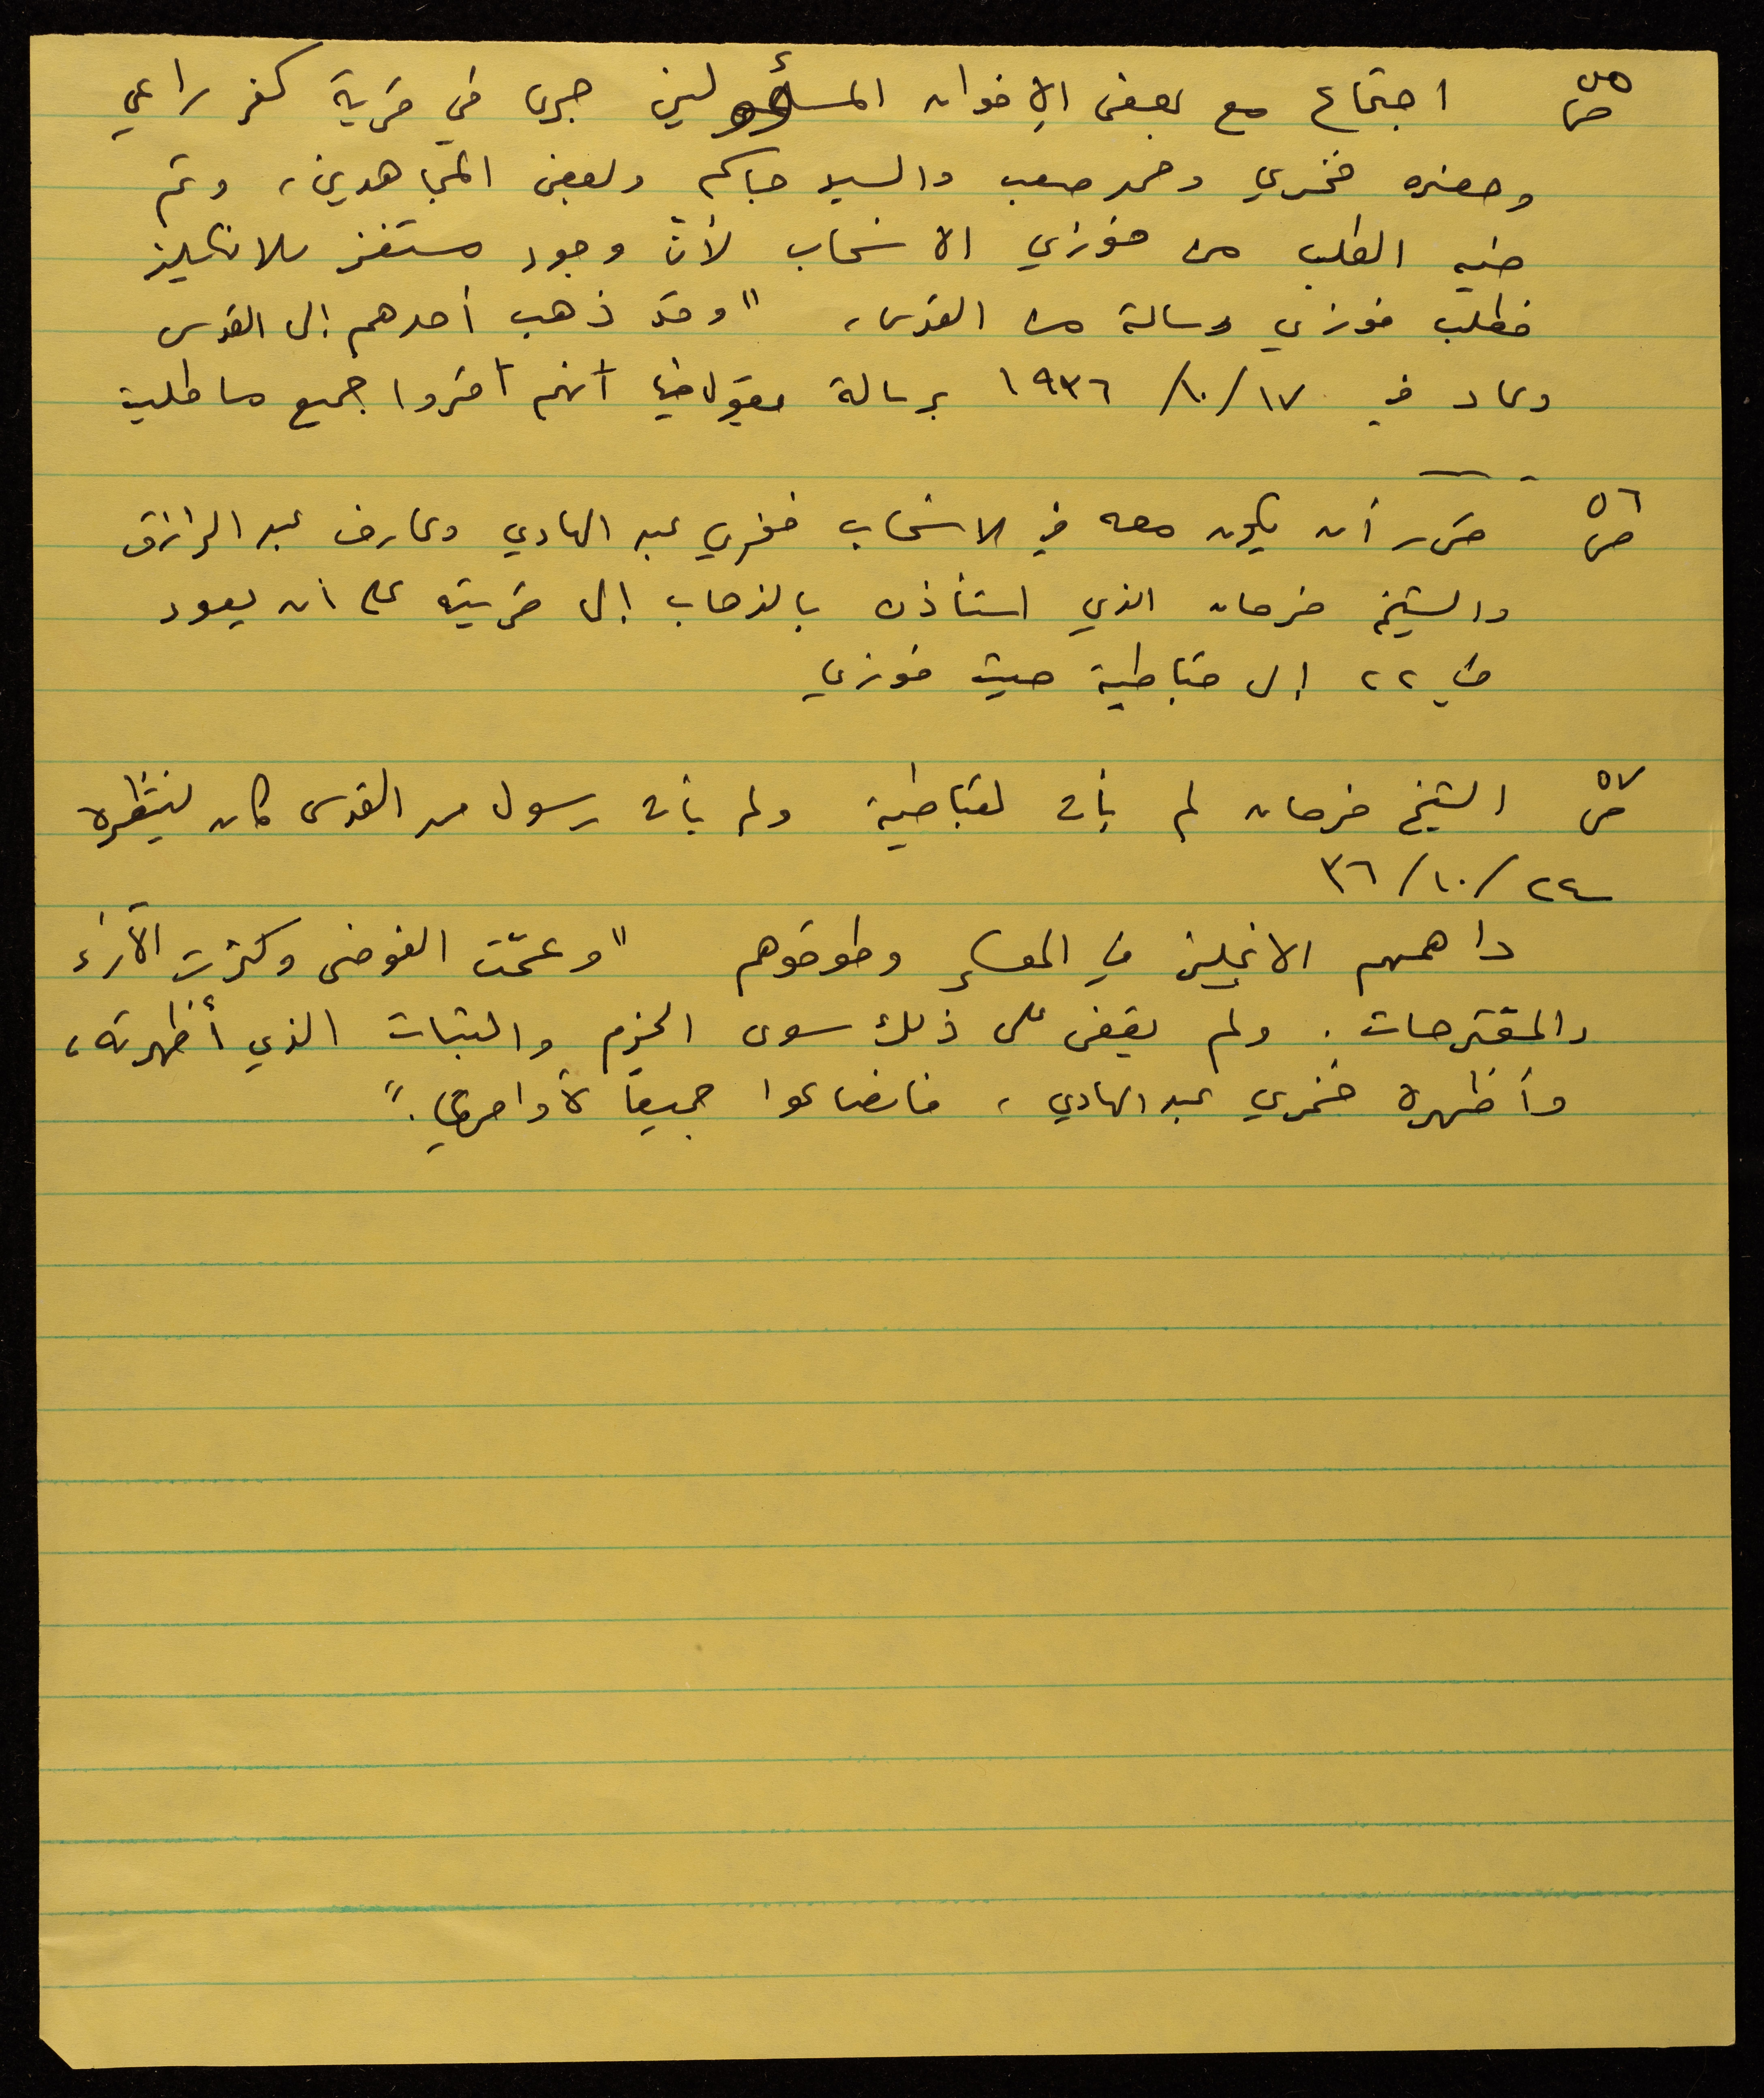 ص٥٥ اجتماع مع بعض الإخوان المسؤولين جرى في قرية كفر راعي
وحضره فخري وحمد صعب والسيد حباكم وبعض المجاهدين، وتم
فيه الطلب من فوزي الانسحاب لأنّ وجود مستفز للانكليز
فطلب فوزي رسالة من القدس، "وقد ذهب أحدهم إلى القدس
وعاد في ١٧/١٠/١٩٣٦ برسالة يقول فيها أنهم أقروا جميع ما طلبت
ص٥٦ قرر أن يكون معه في الانسحاب فخري عبد الهادي وعارف عبد الرازق
والشيخ فرحان الذي استأذن بالذهاب إلى قريته على ان يعود
في ٢٢ إلى قباطية حيث فوزي
ص٥٧ الشيخ فرحان لم يأت لقباطية ولم يأت رسول من القدس كان ينتظره
٢٤/١٠/٣٦
داهمهم الانجليز في المساء وطوقوهم "وعمّت الفوضى وكثرت الآراء
والمقترحات. ولم يقض على ذلك سوى الحزم والثبات الذي أظهرته،
وأظهره فخري عبد الهادي، فانصاعوا جميعاً لأوامرنا."